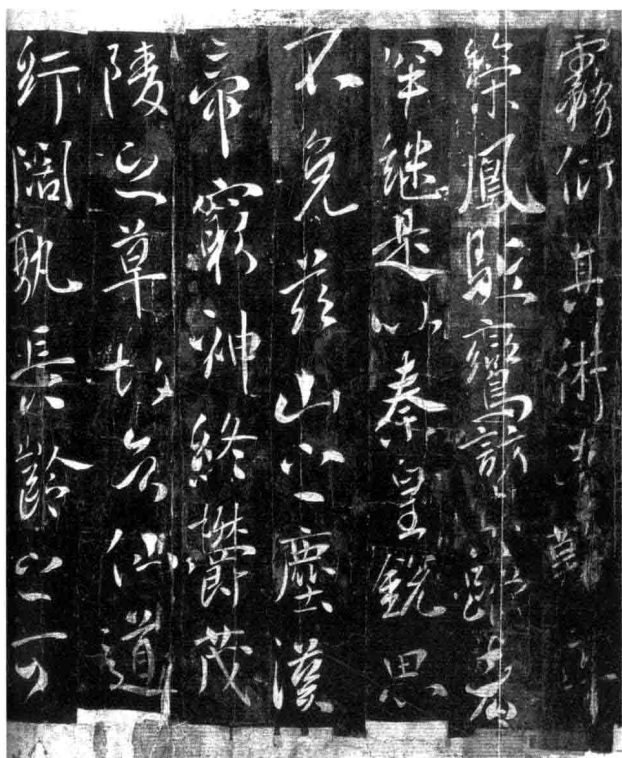 霧其術
鳳駈鸞
罕繼是以秦皇銳思
不免茲山之塵漢
帝窮神終鬱茂
陵之草故知仙道
紆闊孰長齡之可